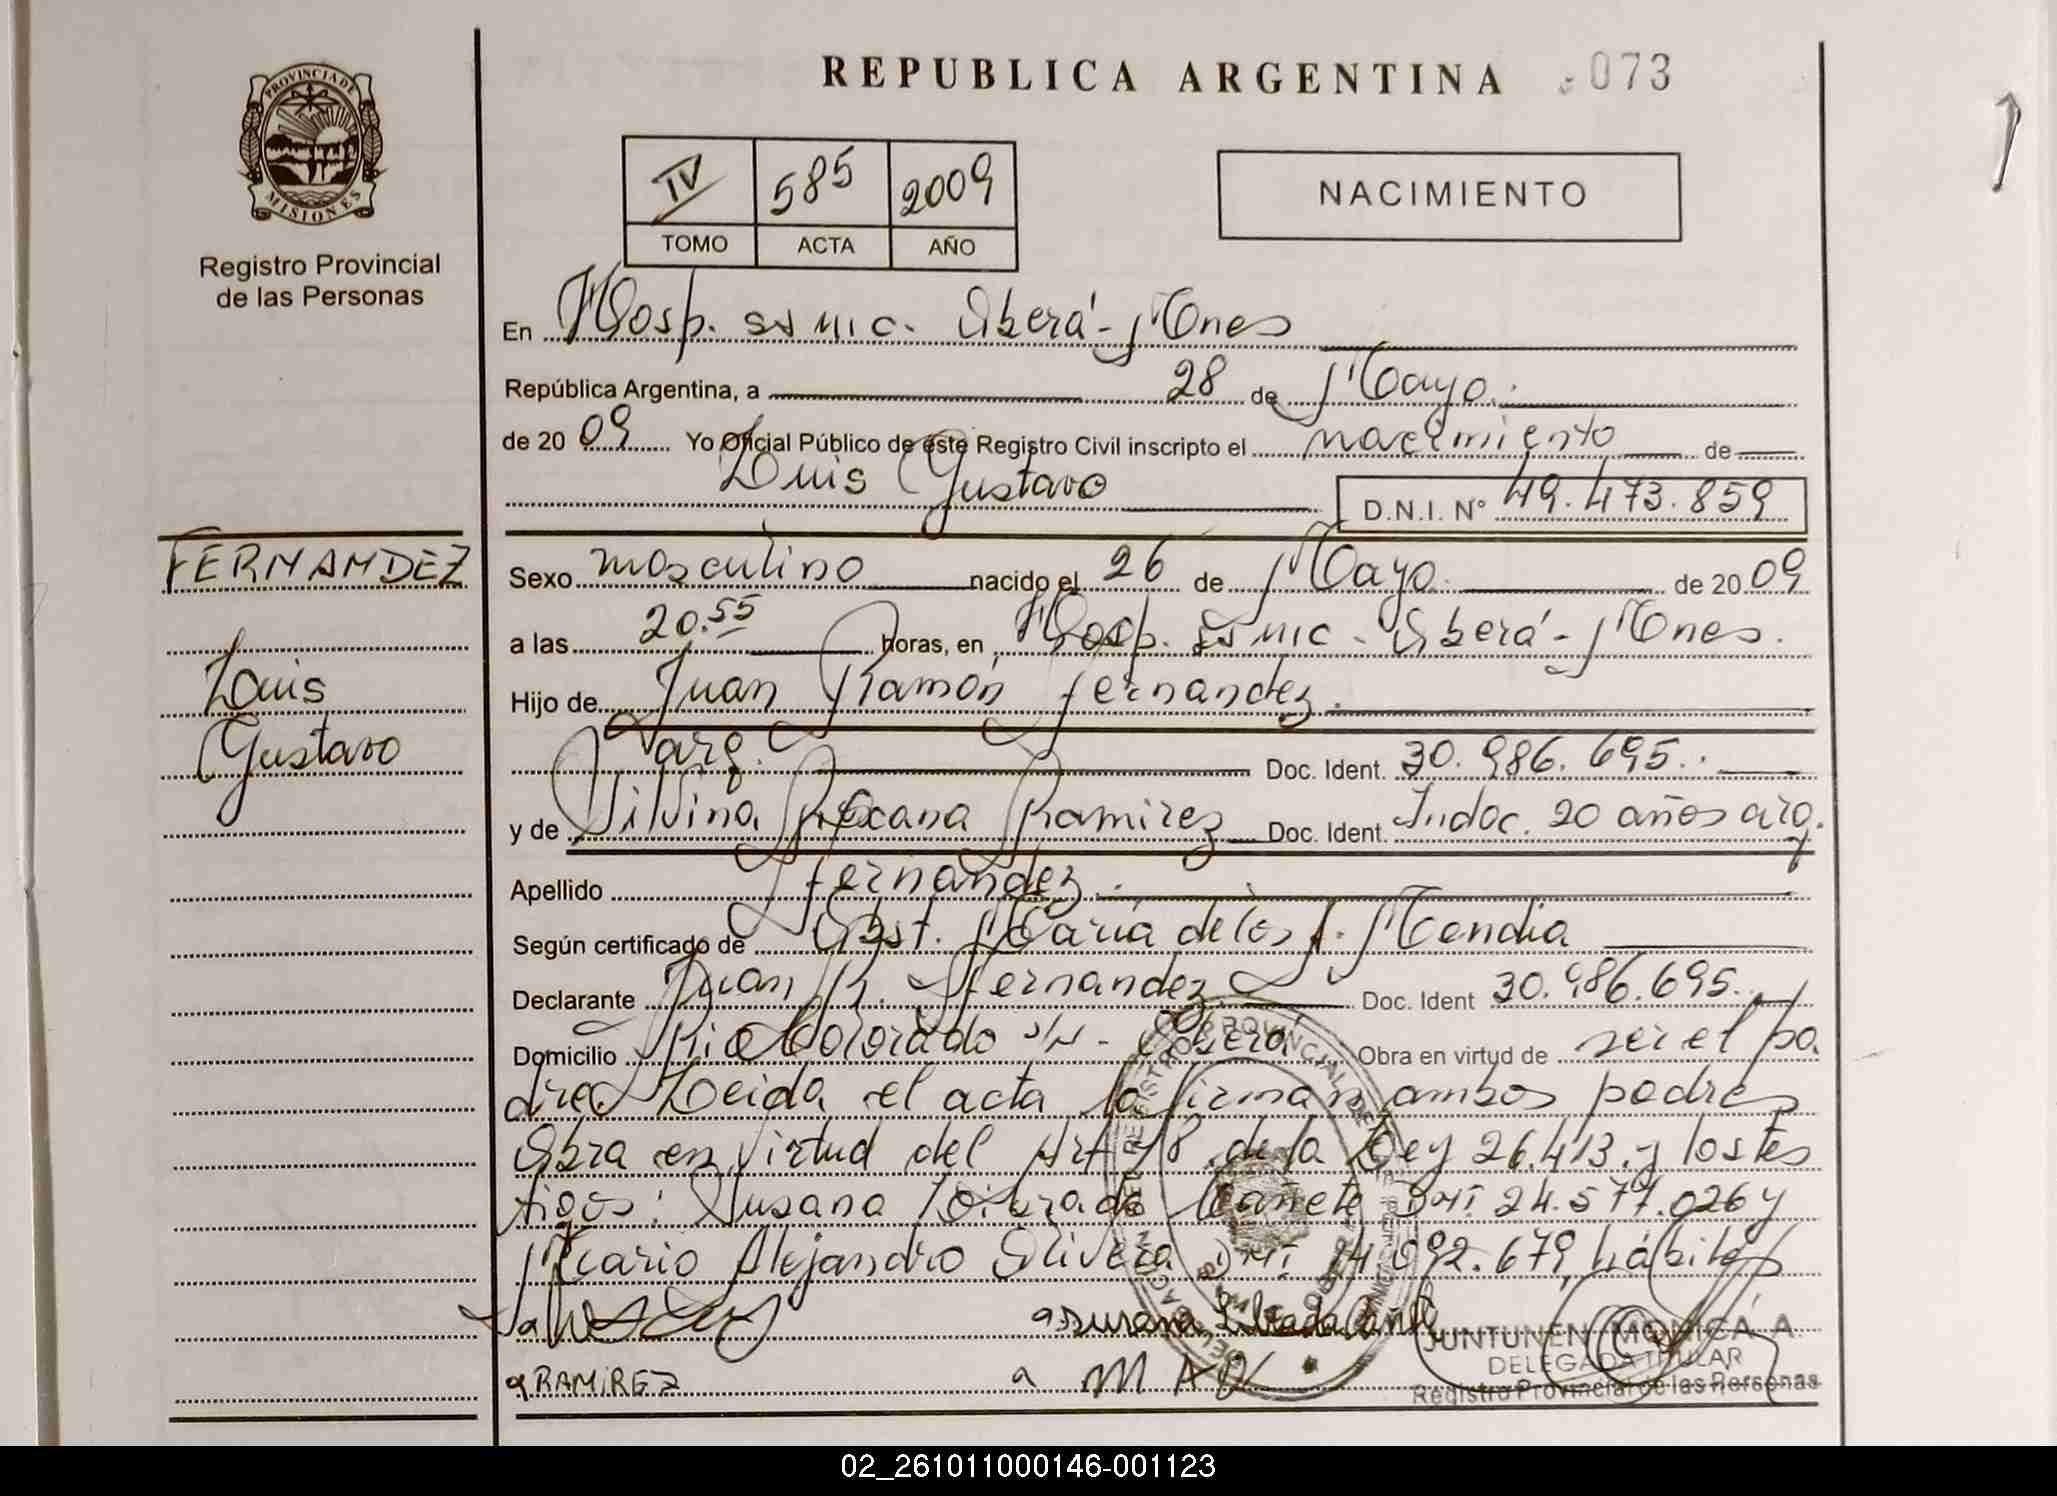 REPUBLICA ARGENTINA 073
PROVINCIA DE
MISIONES
Registro Provincial
de las Personas
IV 585 2009
TOMO ACTA AÑO
NACIMIENTO
En Hosp. SS MIC. Oberá - Mnes
República Argentina, a 28 de Mayo.
de 20 09 Yo Oficial Público de este Registro Civil inscripto el nacimiento de
Luis Gustavo D.N.I. Nº 49.473.859
FERNANDEZ
Luis
Gustavo
Sexo masculino nacido el 26 de Mayo. de 20 09
a las 20.55 horas, en Hosp. SS MIC - Oberá - Mnes.
Hijo de Juan Ramón Fernandez.
arg. Doc. Ident. 30.986.695.
y de Silvina Roxana Ramirez Doc. Ident. Indoc. 20 años arg.
Apellido Fernández.
Según certificado de Obst. María de los A. Mendia
Declarante Juan R. Fernandez Doc. Ident 30.986.695.
Domicilio Rio Colorado S/N - Oberá Obra en virtud de ser el pa
dre Leida el acta la firman ambos padres
Obra en virtud del Art 78 de la Ley 26.413 y los tes
tigos: Susana Librada Cañete DNI. 24.577.026 y
Mario Alejandro Olivera DNI. 14.092.679, hábiles
Susana Librada Cañete
RAMIREZ
M A O
JUNTUNEN MONICA A
DELEGADA TITULAR
Registro Provincial de las Personas
02_261011000146-001123